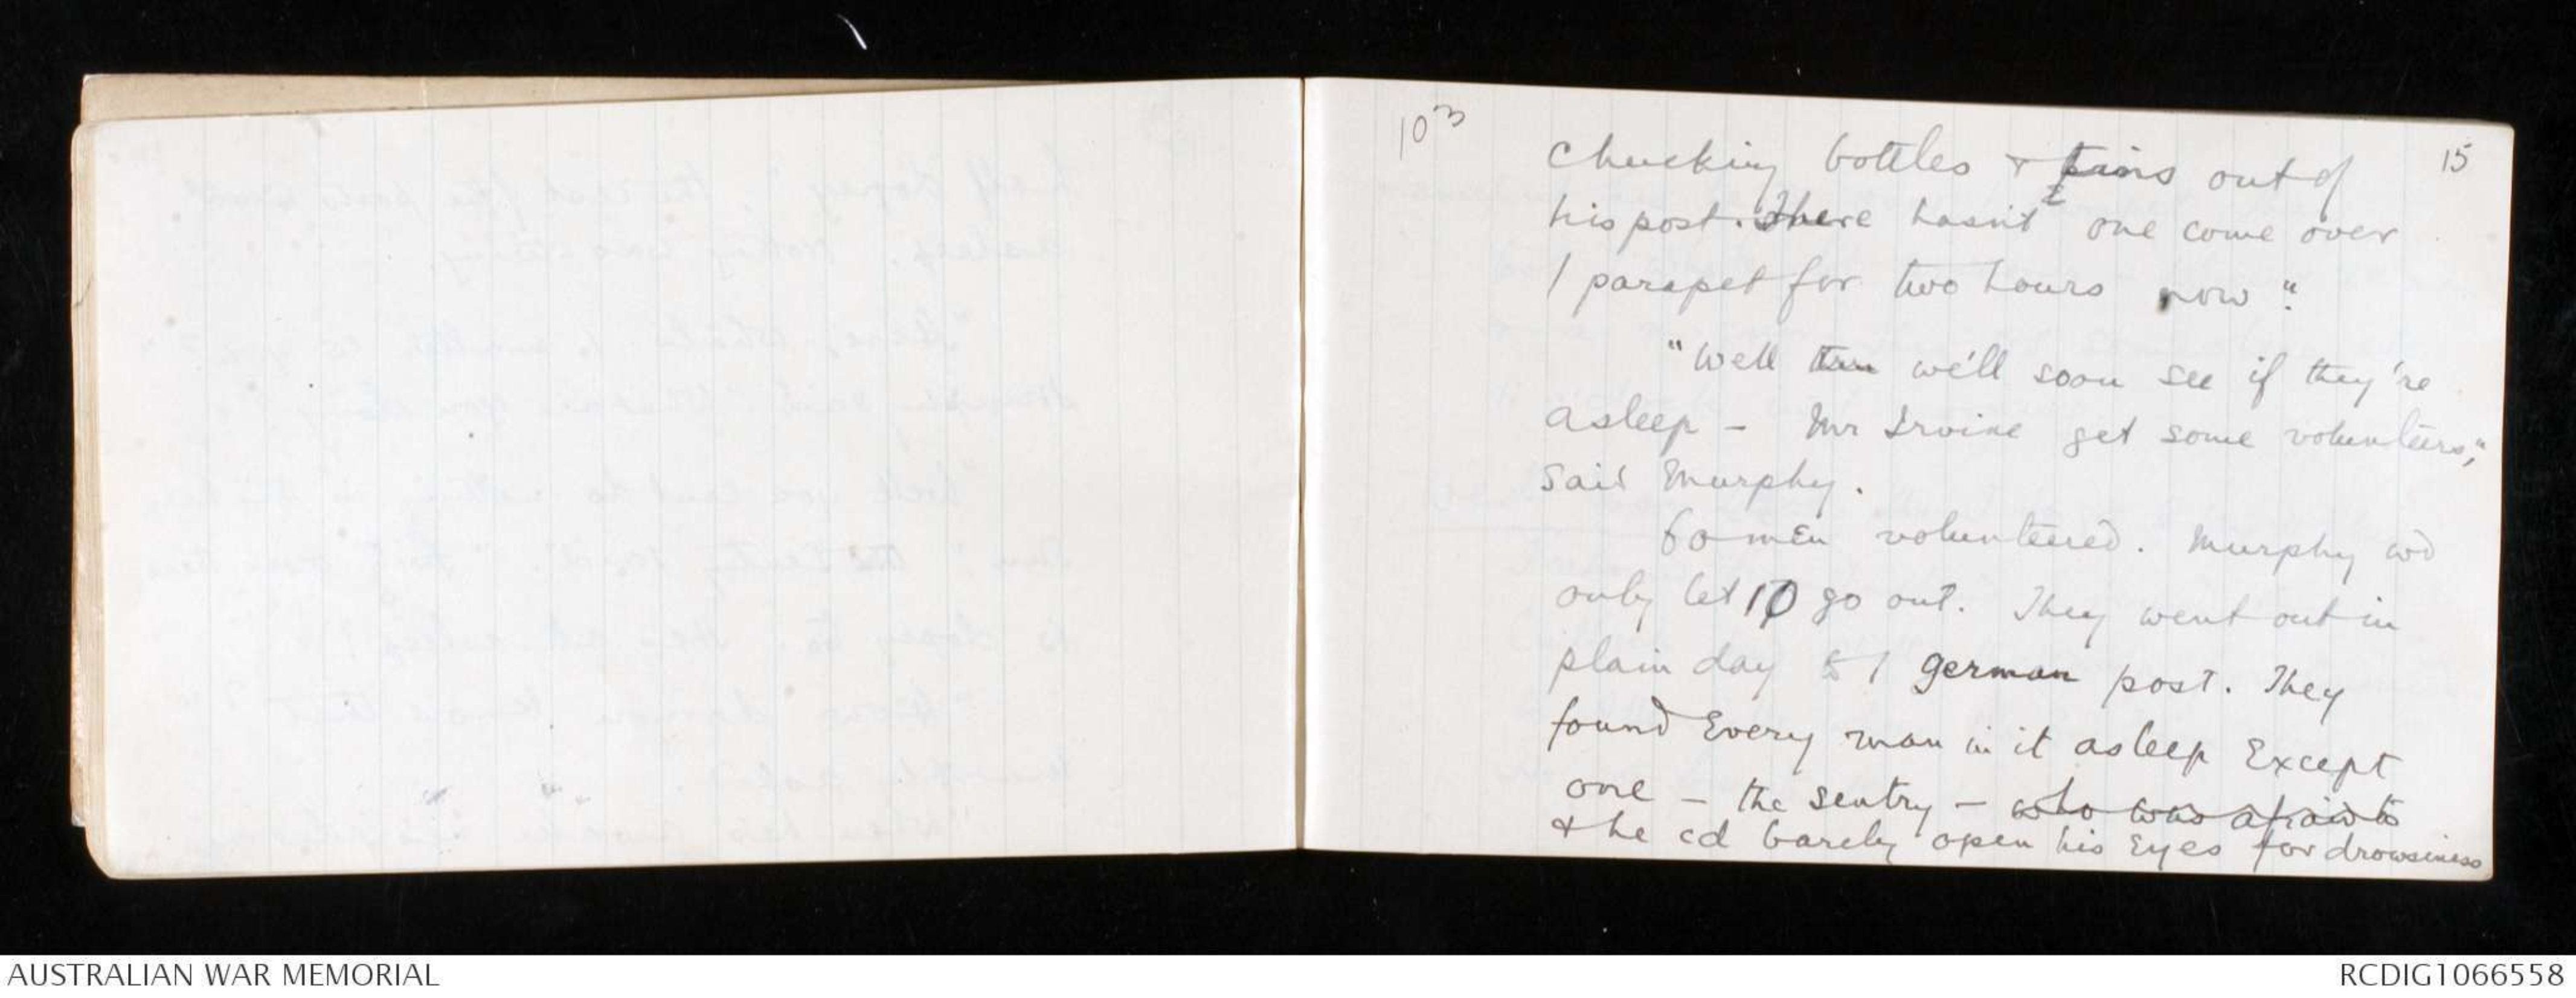 103
15
chucking bottles & tins out of
his post. There hasn't one come over
/ parapet for two hours now".
"Well then we'll soon see if they're
asleep - Mr Irvine get some volunteers,"
said Murphy.
60 men volunteered. Murphy wd
only let 10 go out. They went out in
plain day to / German post. They
found every man in it asleep except
one - the sentry - who was afraid to
& he cd barely open his eyes for drowsiness
AUSTRALIAN WAR MEMORIAL
RCDIG1066558